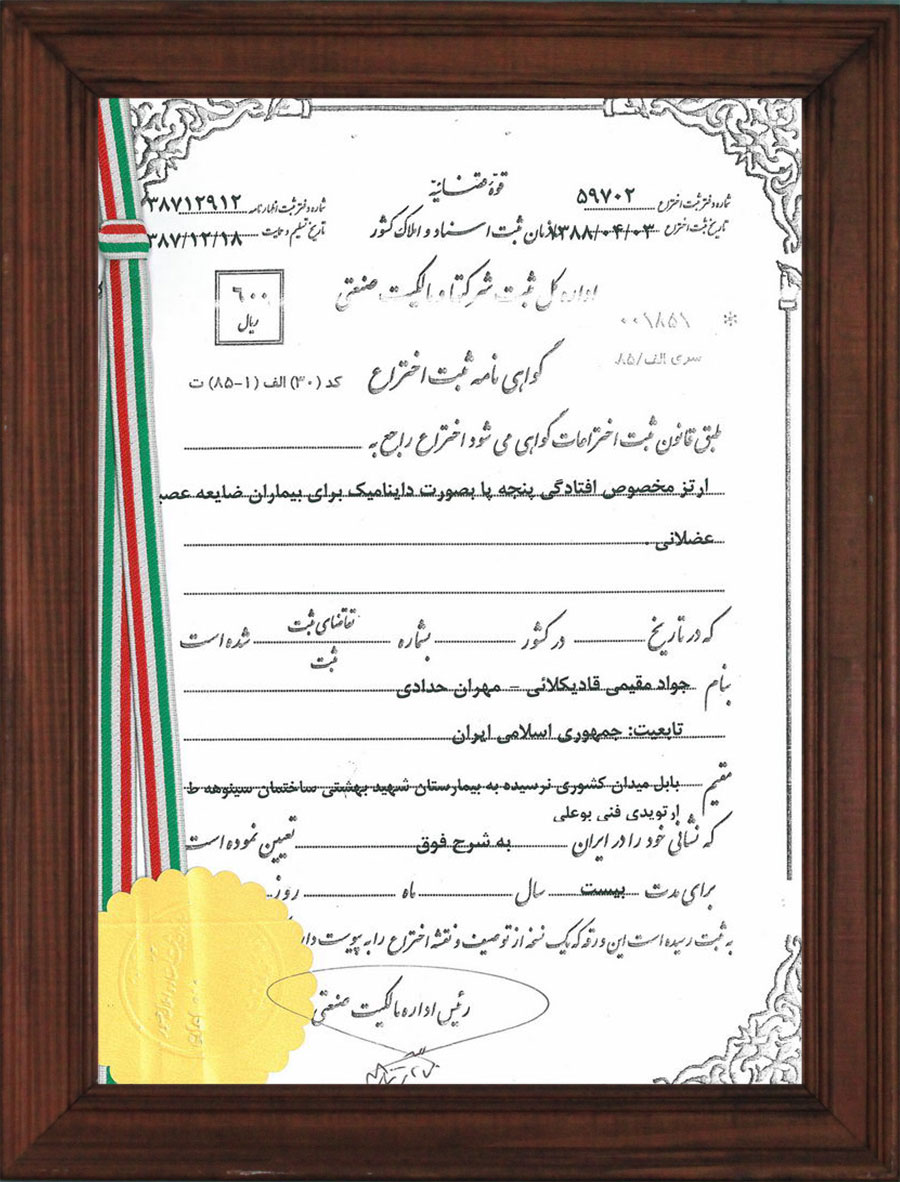 قوهٔ قضائیه
شماره دفتر ثبت اختراع ۵۹۷۰۲
شماره دفتر ثبت اظهارنامه ۳۸۷۱۲۹۱۲
تاریخ ثبت اختراع ۱۳۸۸/۰۴/۰۳
سازمان ثبت اسناد و املاک کشور
تاریخ تسلیم و حمایت ۱۳۸۷/۱۲/۱۸
اداره کل ثبت شرکتها و مالکیت صنعتی
۶۰۰
ریال
سری الف/۸۵
گواهی نامه ثبت اختراع
کد (۳۰) الف (۱-۸۵) ت
طبق قانون ثبت اختراعات گواهی می شود اختراع راجع به
ارتز مخصوص افتادگی پنجه پا بصورت داینامیک برای بیماران ضایعه عصبی
عضلانی .
که در تاریخ در کشور بشماره تقاضای ثبت شده است
ثبت
بنام جواد مقیمی قادیکلائی - مهران حدادی
تابعیت: جمهوری اسلامی ایران
مقیم بابل میدان کشوری نرسیده به بیمارستان شهید بهشتی ساختمان سینوهه ط
ارتوپدی فنی بوعلی
که نشانی خود را در ایران به شرح فوق تعیین نموده است
برای مدت بیست سال ماه روز
به ثبت رسیده است این ورقه که یک نسخه از توصیف و نقشه اختراع را به پیوست دارد
رئیس اداره مالکیت صنعتی